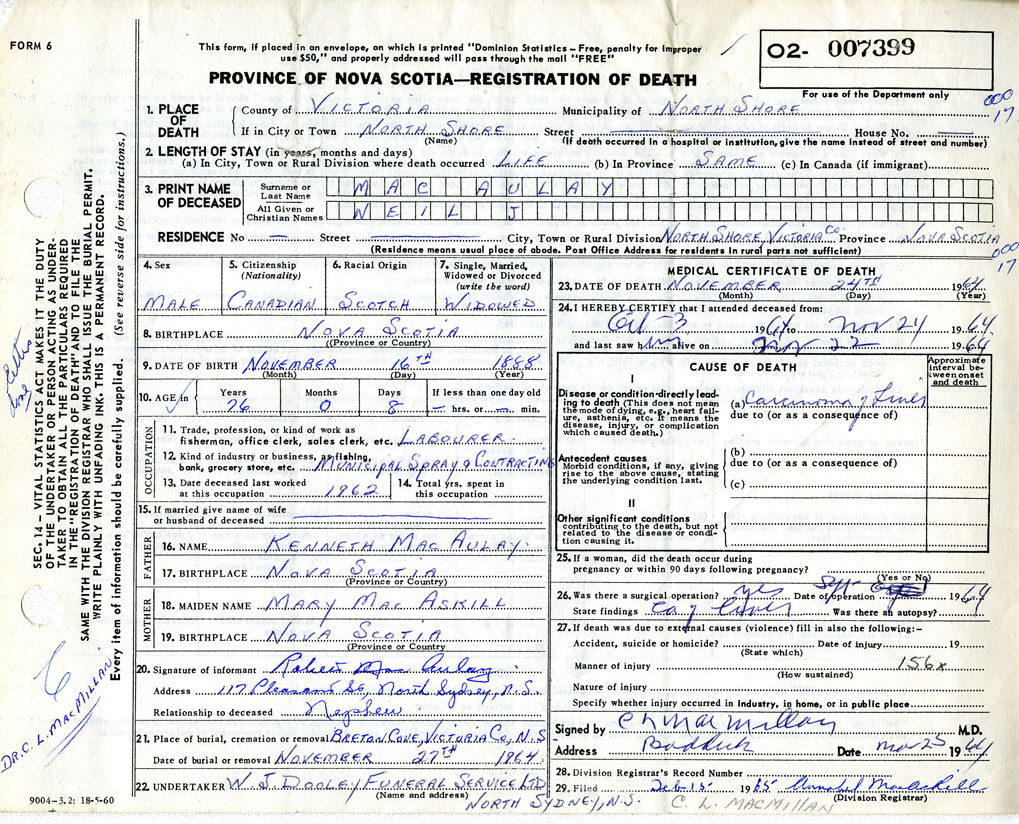 FORM 6
This form, if placed in an envelope, on which is printed "Dominion Statistics – Free, penalty for improper
use $50," and properly addressed will pass through the mail "FREE"
PROVINCE OF NOVA SCOTIA—REGISTRATION OF DEATH
O2- 007399
For use of the Department only
000
17
1. PLACE OF DEATH County of VICTORIA Municipality of NORTH SHORE
If in City or Town NORTH SHORE Street House No.
(Name) (If death occurred in a hospital or institution, give the name instead of street and number)
2. LENGTH OF STAY (in years, months and days)
(a) In City, Town or Rural Division where death occurred LIFE (b) In Province SAME (c) In Canada (if immigrant)
3. PRINT NAME OF DECEASED Surname or Last Name MAC AULAY
All Given or Christian Names NEIL J
RESIDENCE No — Street City, Town or Rural Division NORTH SHORE, VICTORIA Co. Province NOVA SCOTIA
(Residence means usual place of abode. Post Office Address for residents in rural parts not sufficient)
000
17
4. Sex 5. Citizenship (Nationality) 6. Racial Origin 7. Single, Married, Widowed or Divorced (write the word)
MALE CANADIAN SCOTCH WIDOWED
8. BIRTHPLACE NOVA SCOTIA
(Province or Country)
9. DATE OF BIRTH NOVEMBER 16TH 1888
(Month) (Day) (Year)
10. AGE in Years Months Days If less than one day
76 0 8 — hrs. or — min.
OCCUPATION
11. Trade, profession, or kind of work as
fisherman, office clerk, sales clerk, etc. LABOURER.
12. Kind of industry or business, as fishing,
bank, grocery store, etc. MUNICIPAL SPRAY & CONTRACTING
13. Date deceased last worked at this occupation 1962 14. Total yrs. spent in this occupation
15. If married give name of wife
or husband of deceased
FATHER
16. NAME KENNETH MAC AULAY.
17. BIRTHPLACE NOVA SCOTIA
(Province or Country)
MOTHER
18. MAIDEN NAME MARY MAC ASKILL
19. BIRTHPLACE NOVA SCOTIA
(Province or Country
20. Signature of informant Robert Mac Aulay
Address 117 Pleasant St, North Sydney, N.S.
Relationship to deceased Nephew
21. Place of burial, cremation or removal BRETON COVE, VICTORIA Co, N.S
Date of burial or removal NOVEMBER 27TH 1964.
22. UNDERTAKER W. J. DOOLEY FUNERAL SERVICE LTD
(Name and address) NORTH SYDNEY, N.S.
9004-3.2: 18-5-60
MEDICAL CERTIFICATE OF DEATH
23. DATE OF DEATH NOVEMBER 24TH 1964
(Month) (Day) (Year)
24. I HEREBY CERTIFY that I attended deceased from:
Oct-3 1964 to Nov 24 1964
and last saw him alive on Nov 22 1964
CAUSE OF DEATH
Approximate interval between onset and death
I
Disease or condition directly leading to death (This does not mean the mode of dying, e.g., heart failure, asthenia, etc. It means the disease, injury, or complication which caused death.)
(a) Carcinoma of Liver
due to (or as a consequence of)
Antecedent causes
Morbid conditions, if any, giving rise to the above cause, stating the underlying condition last.
(b)
due to (or as a consequence of)
(c)
II
Other significant conditions
contributing to the death, but not related to the disease or condition causing it.
25. If a woman, did the death occur during
pregnancy or within 90 days following pregnancy?
(Yes or No)
26. Was there a surgical operation? yes Date of operation 1964
State findings Ca of Liver Was there an autopsy?
27. If death was due to external causes (violence) fill in also the following:–
Accident, suicide or homicide? Date of injury 19
(State which)
Manner of injury 156x
(How sustained)
Nature of injury
Specify whether injury occurred in Industry, in home, or in public place
Signed by C L MacMillan M.D.
Address Baddeck Date Nov 25 1964
28. Division Registrar's Record Number
29. Filed Feb 15 1965 Annabel MacAskill
(Division Registrar)
C. L. MACMILLAN
SEC. 14 – VITAL STATISTICS ACT MAKES IT THE DUTY
OF THE UNDERTAKER OR PERSON ACTING AS UNDER-
TAKER TO OBTAIN ALL THE PARTICULARS REQUIRED
IN THE "REGISTRATION OF DEATH" AND TO FILE THE
SAME WITH THE DIVISION REGISTRAR WHO SHALL ISSUE THE BURIAL PERMIT.
WRITE PLAINLY WITH UNFADING INK. THIS IS A PERMANENT RECORD.
Every item of information should be carefully supplied. (See reverse side for instructions.)
DR. C. L. MACMILLAN